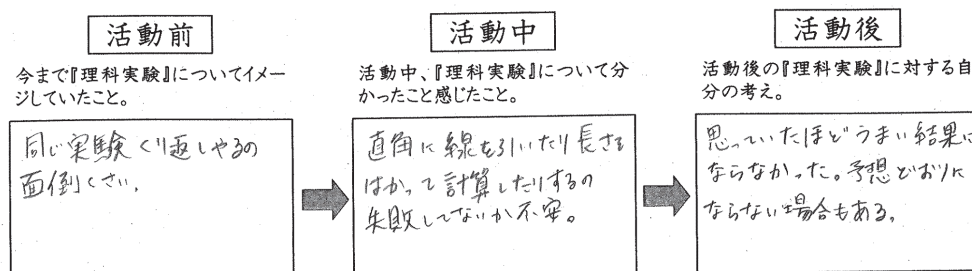 活動前
今まで『理科実験』についてイメー
ジしていたこと。
同じ実験くり返しやるの
面倒くさい。
活動中
活動中、『理科実験』について分
かったこと感じたこと。
直角に線を引いたり長さを
はかって計算したりするの
失敗してないか不安。
活動後
活動後の『理科実験』に対する自
分の考え。
思っていたほどうまい結果に
ならなかった。予想どおりに
ならない場合もある。